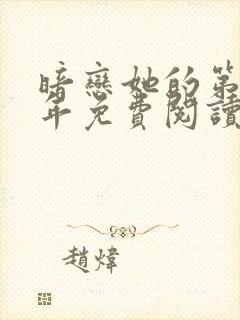 暗戀她的第
年免費閱讀
趙煒